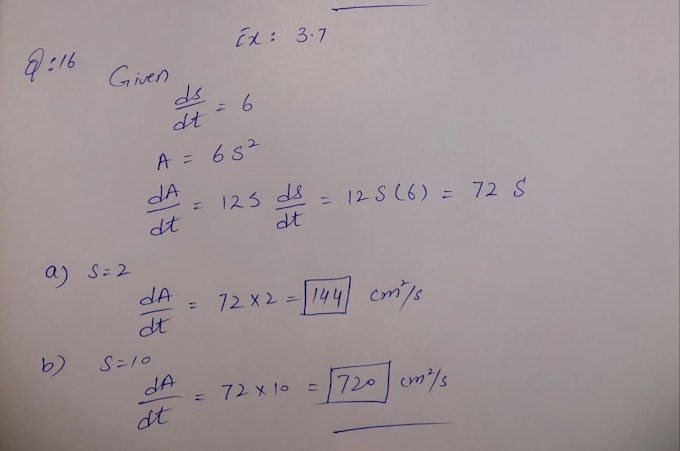 Ex: 3.7
Q:16
Given
ds/dt = 6
A = 6S²
dA/dt = 12S ds/dt = 12S(6) = 72 S
a) S=2
dA/dt = 72×2 = 144 cm²/s
b) S=10
dA/dt = 72×10 = 720 cm²/s